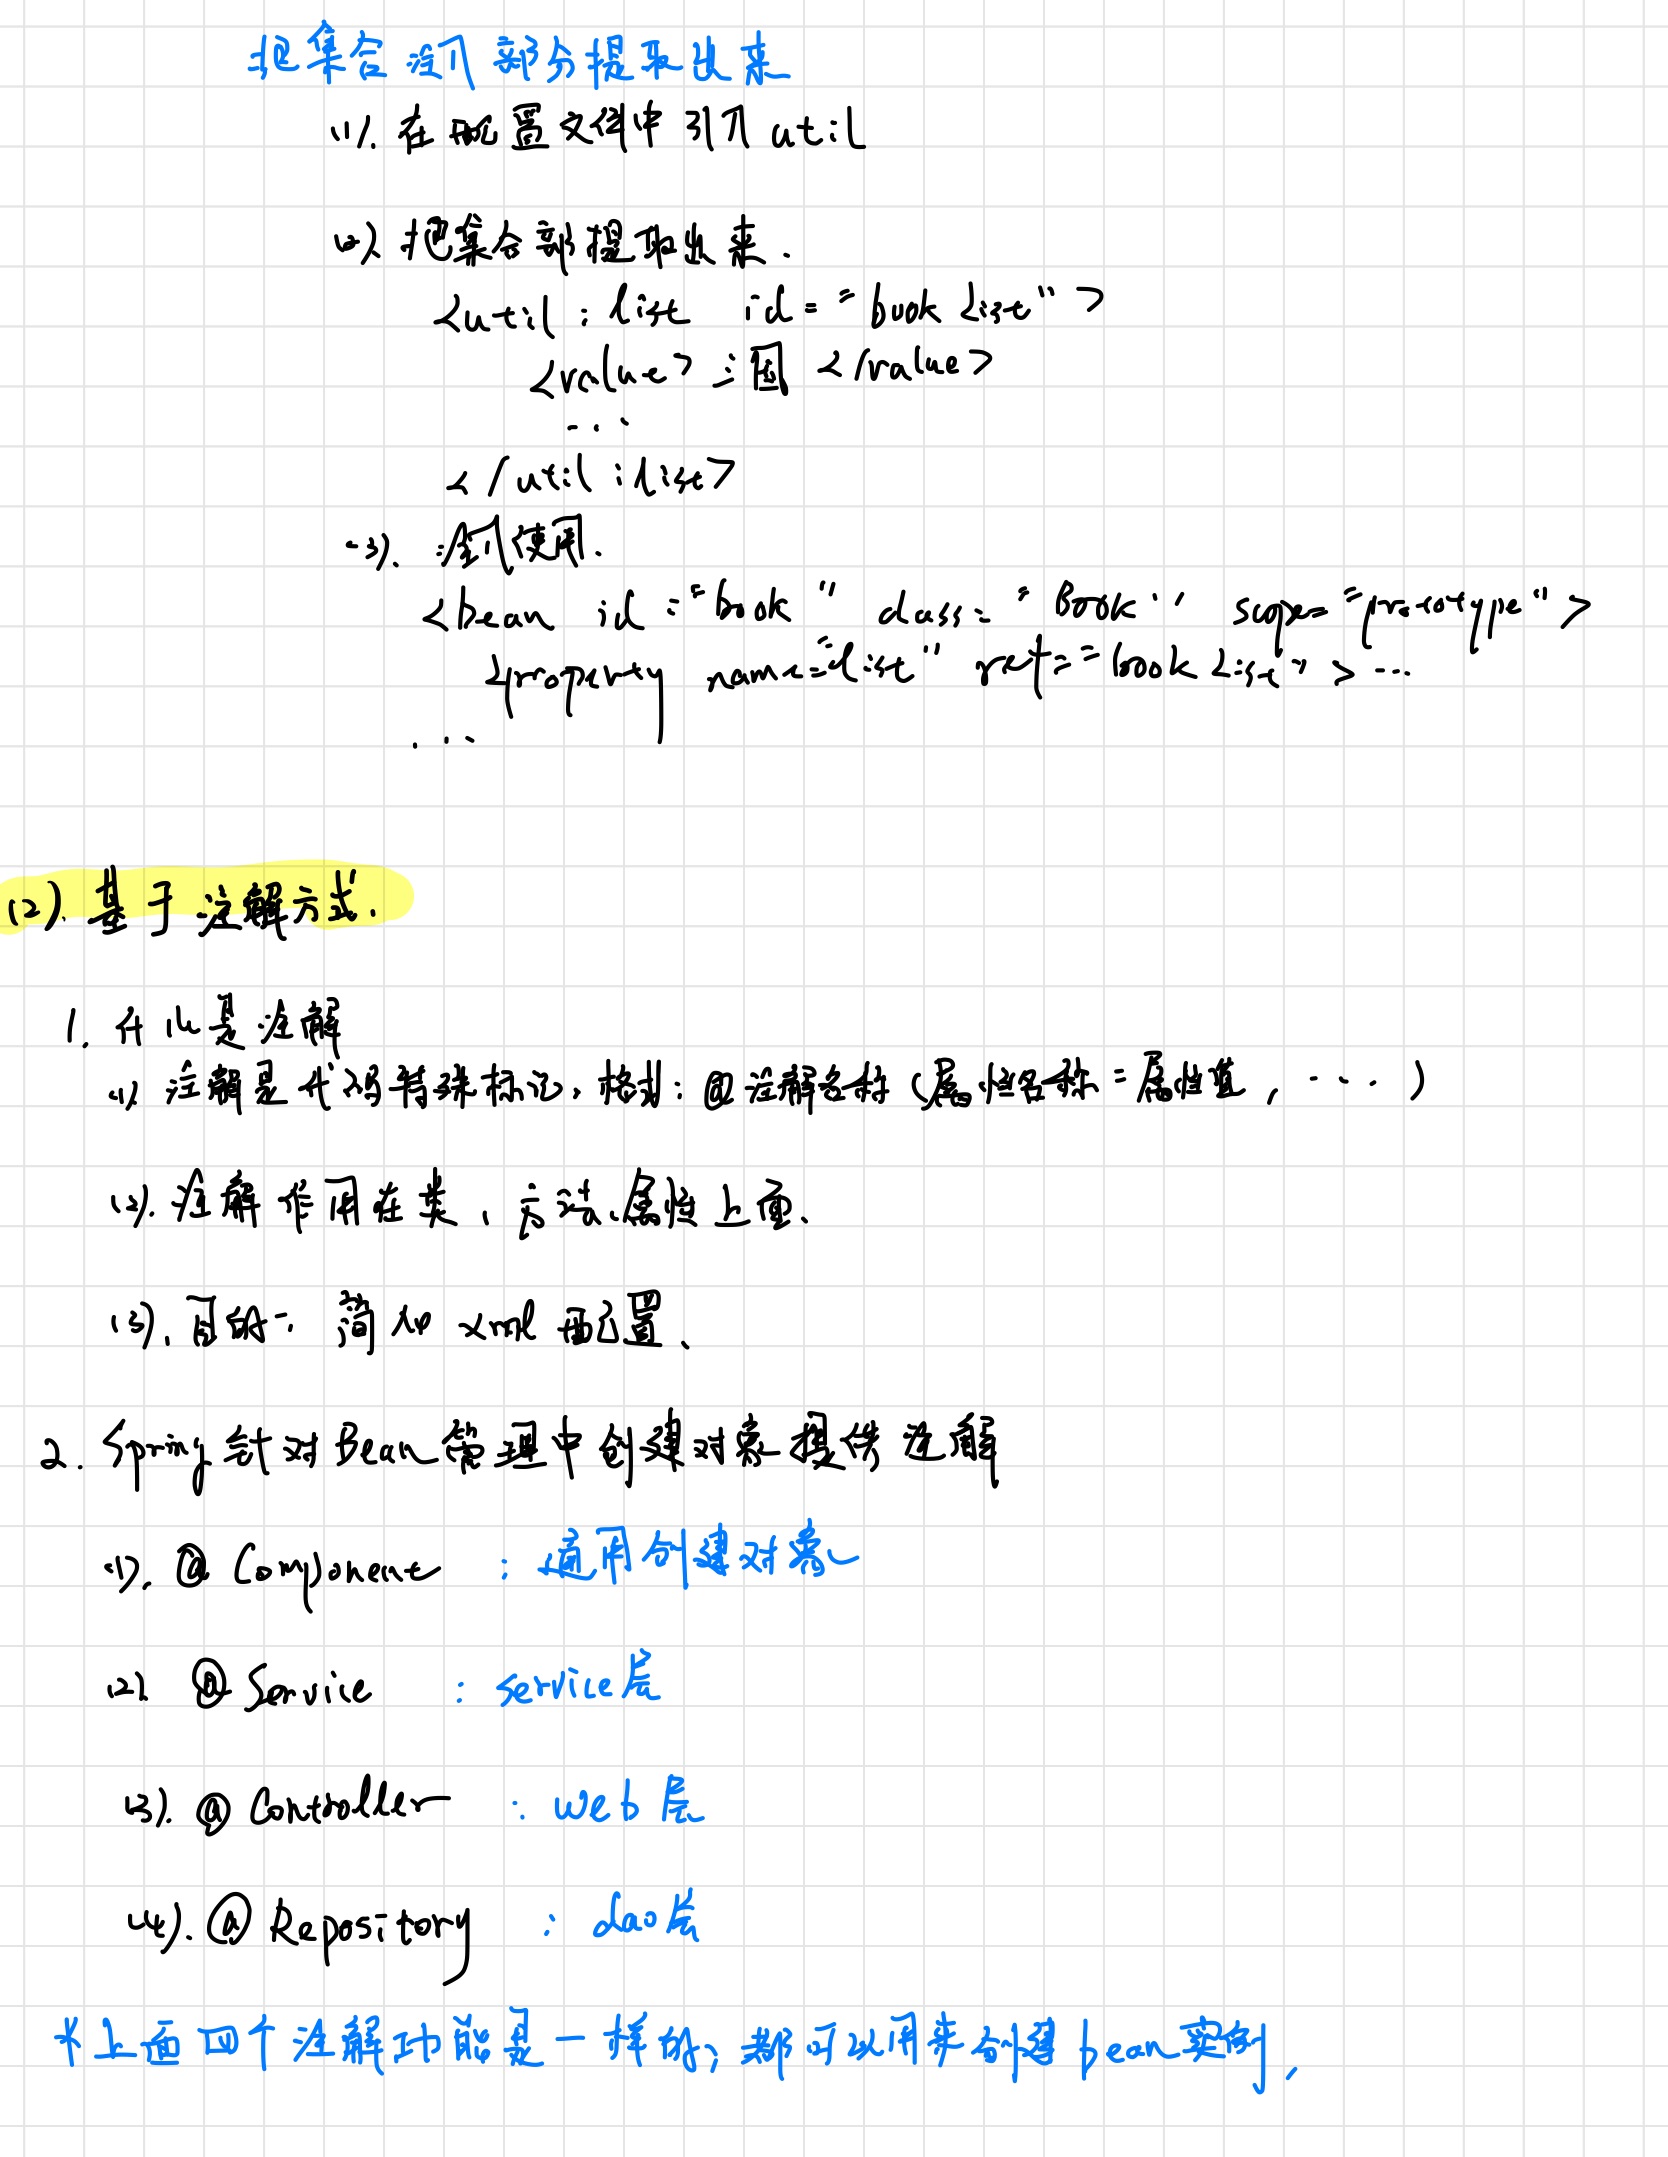 把集合注入部分提取出来
(1). 在配置文件中引入 util
(2). 把集合部提取出来.
<util : list id = "bookList" >
<value> 三国 </value>
...
</util : list>
(3). 注入使用.
<bean id = "book" class = "Book" scope = "prototype" >
<property name = "list" ref = "bookList" > ...
...
(2). 基于注解方式.
1. 什么是注解
(1). 注解是代码特殊标记, 格式: @注解名称 (属性名称 = 属性值, ....)
(2). 注解作用在类、方法、属性上面.
(3). 目的: 简化 xml 配置、
2. Spring 针对 Bean 管理中创建对象提供注解
(1). @ Component : 通用创建对象
(2). @ Service : service层
(3). @ Controller : web 层
(4). @ Repository : dao层
* 上面四个注解功能是一样的, 都可以用来创建 bean 实例,